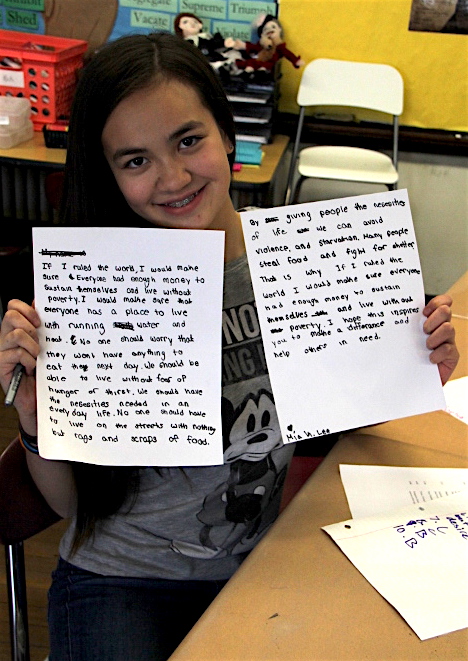 Shed
Aggregate
Vacate
Supreme
Triumph
Violate
8A
If I ruled the world, I would mahe
sure Everyone had enough money to
sustain themselves and live without
poverty. I would mahe sure that
everyone has a place to live
with running water and
heat. No one should worry that
they wont have anything to
eat the next day. We should be
able to live without fear of
hunger or thirst. We should have
the necesities needed in an
every day life. No one should have
to live on the streets with nothing
but rags and scraps of food.
By giving people the necesities
of life we can avoid
violence, and starvation. Many people
steal food and fight for shelter
That is why If I ruled the
world I would mahe sure everyone
had enough money to sustain
themselves and live without
poverty. I hope this inspires
you to mahe a difference and
help others in need.
Mia H. Lee
NO
7. C
8. B
10. B